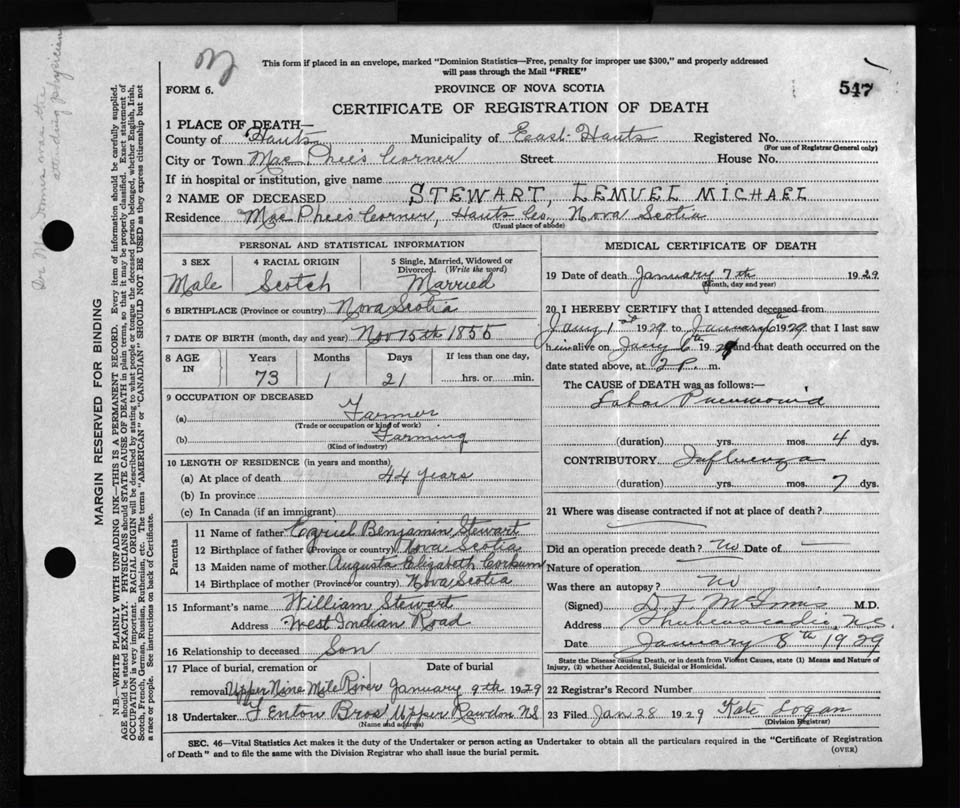 This form if placed in an envelope, marked "Dominion Statistics—Free, penalty for improper use $300," and properly addressed
will pass through the Mail "FREE"
FORM 6.
PROVINCE OF NOVA SCOTIA
547
CERTIFICATE OF REGISTRATION OF DEATH
1 PLACE OF DEATH—
County of Hants Municipality of East Hants Registered No.
(For use of Registrar General only)
City or Town Mac Phee's Corner Street House No.
If in hospital or institution, give name
2 NAME OF DECEASED STEWART, LEMUEL MICHAEL
Residence Mac Phee's Corner, Hants Co., Nova Scotia
(Usual place of abode)
PERSONAL AND STATISTICAL INFORMATION
3 SEX 4 RACIAL ORIGIN 5 Single, Married, Widowed or
Divorced. (Write the word)
Male Scotch Married
6 BIRTHPLACE (Province or country) Nova Scotia
7 DATE OF BIRTH (month, day and year) Nov 15th 1855
8 AGE IN Years Months Days If less than one day,
73 1 21 hrs. or min.
9 OCCUPATION OF DECEASED
(a) Farmer
(Trade or occupation or kind of work)
(b) Farming
(Kind of industry)
10 LENGTH OF RESIDENCE (in years and months)
(a) At place of death 44 years
(b) In province
(c) In Canada (if an immigrant)
Parents
11 Name of father Benjamin Stewart
12 Birthplace of father (Province or country) Nova Scotia
13 Maiden name of mother Augusta Elizabeth Corkum
14 Birthplace of mother (Province or country) Nova Scotia
15 Informant's name William Stewart
Address West Indian Road
16 Relationship to deceased Son
17 Place of burial, cremation or Date of burial
removal Upper Nine Mile River January 9th 1929
18 Undertaker Bros Upper Rawdon NS
(Name and address)
MEDICAL CERTIFICATE OF DEATH
19 Date of death January 7th 1929
(Month, day and year)
20 I HEREBY CERTIFY that I attended deceased from
Jany 1st 1929 to January 6th 1929 that I last saw
him alive on Jany 6th 1929 and that death occurred on the
date stated above, at 2 P. m.
The CAUSE of DEATH was as follows:—
Lobar Pneumonia
(duration) yrs. mos. 4 dys.
CONTRIBUTORY Influenza
(duration) yrs. mos. 7 dys.
21 Where was disease contracted if not at place of death?
Did an operation precede death? No Date of —
Nature of operation
Was there an autopsy? No
(Signed) McInnis M.D.
Address Shubenacadie, N.S.
Date January 8th 1929
State the Disease causing Death, or in death from Violent Causes, state (1) Means and Nature of
Injury, (2) whether Accidental, Suicidal or Homicidal.
22 Registrar's Record Number
23 Filed Jan 28 1929 Kate Logan
(Division Registrar)
SEC. 46—Vital Statistics Act makes it the duty of the Undertaker or person acting as Undertaker to obtain all the particulars required in the "Certificate of Registration
of Death" and to file the same with the Division Registrar who shall issue the burial permit.
(OVER)
MARGIN RESERVED FOR BINDING
N.B.—WRITE PLAINLY WITH UNFADING INK—THIS IS A PERMANENT RECORD. Every item of information should be carefully supplied.
AGE should be stated EXACTLY. PHYSICIANS should STATE CAUSE OF DEATH in plain terms, so that it may be properly classified. Exact statement of
OCCUPATION is very important. RACIAL ORIGIN will be described by stating to what people or tongue the deceased person belonged, whether English, Irish,
Scotch, French, German, Russian, Ruthenian, etc. The terms "AMERICAN" or "CANADIAN" SHOULD NOT BE USED as they express citizenship but not
a race or people. See instructions on back of Certificate.
was the
attending physician